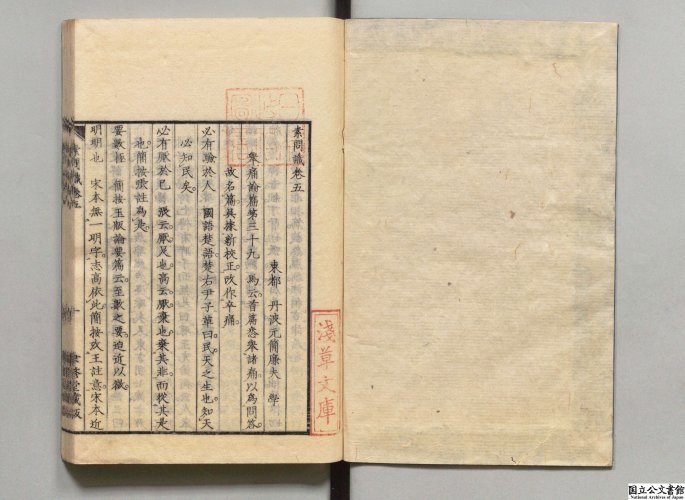 素問識卷五
東都 丹波元簡廉夫 學
舉痛論篇第三十九 馬云首篇悉舉諸痛以爲問答
故名篇吳據新校正改作卒痛
必有驗於人 國語楚語楚右尹子革曰民天之生也知天
必知民矣
必有厭於己 張云厭足也高云厭棄也棄其非而從其是
也簡按張註爲是
要數極 簡按玉版論要篇云至數之要迫近以微
明明也 宋本無一明字志高依此簡按或王註意宋本近
淺草文庫
国立公文書館
National Archives of Japan